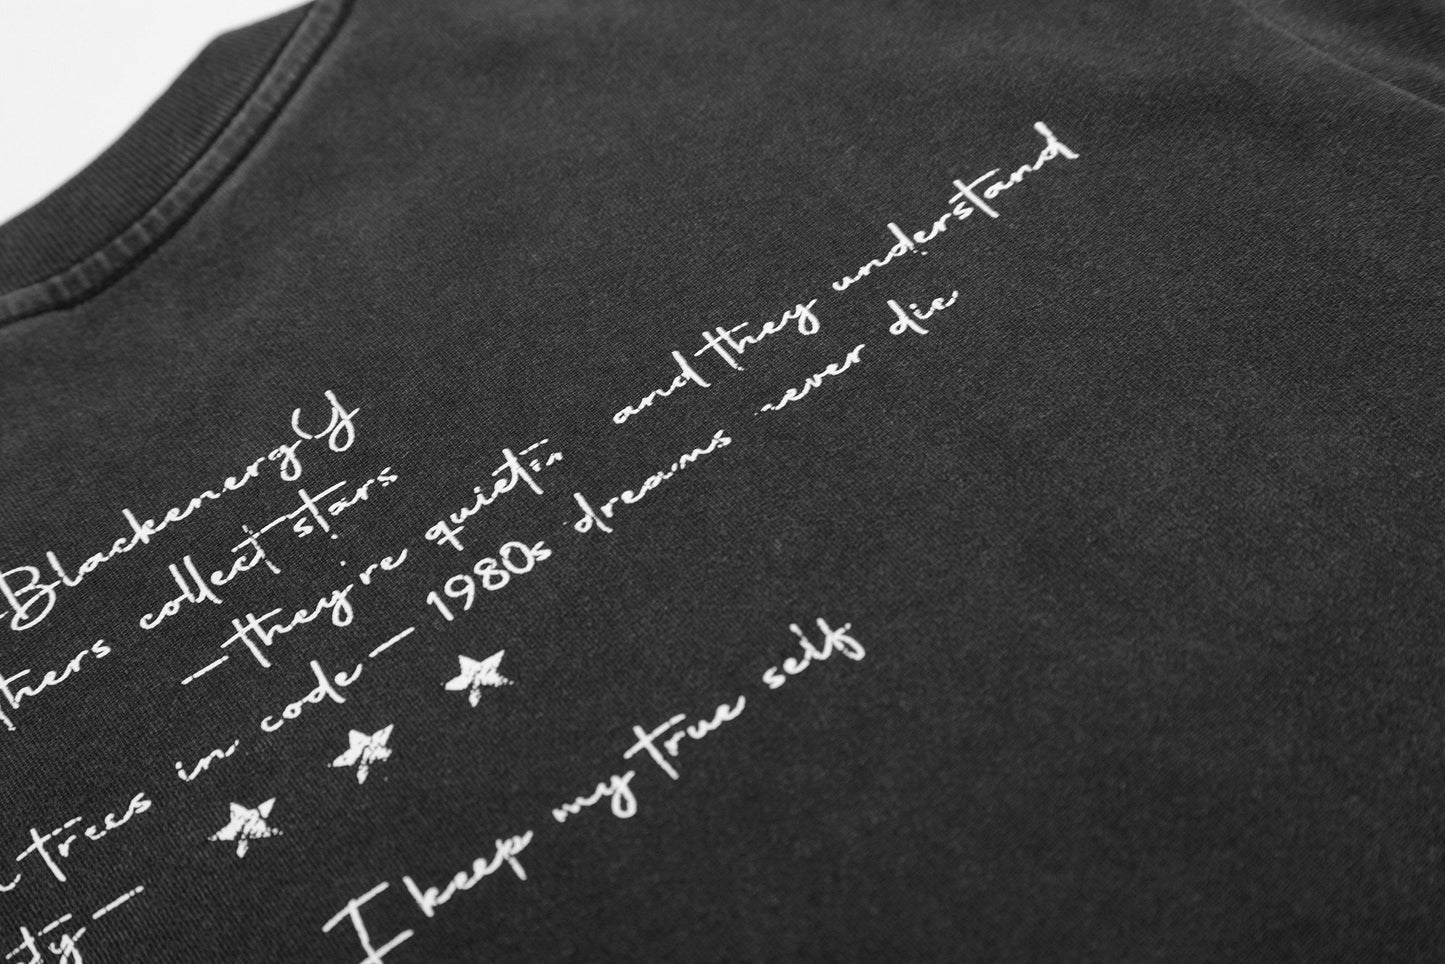 BlackenergY
thers collect stars
—they're quiet and they understand
trees in code— 1980s dreams never die
ty—
I keep my true self